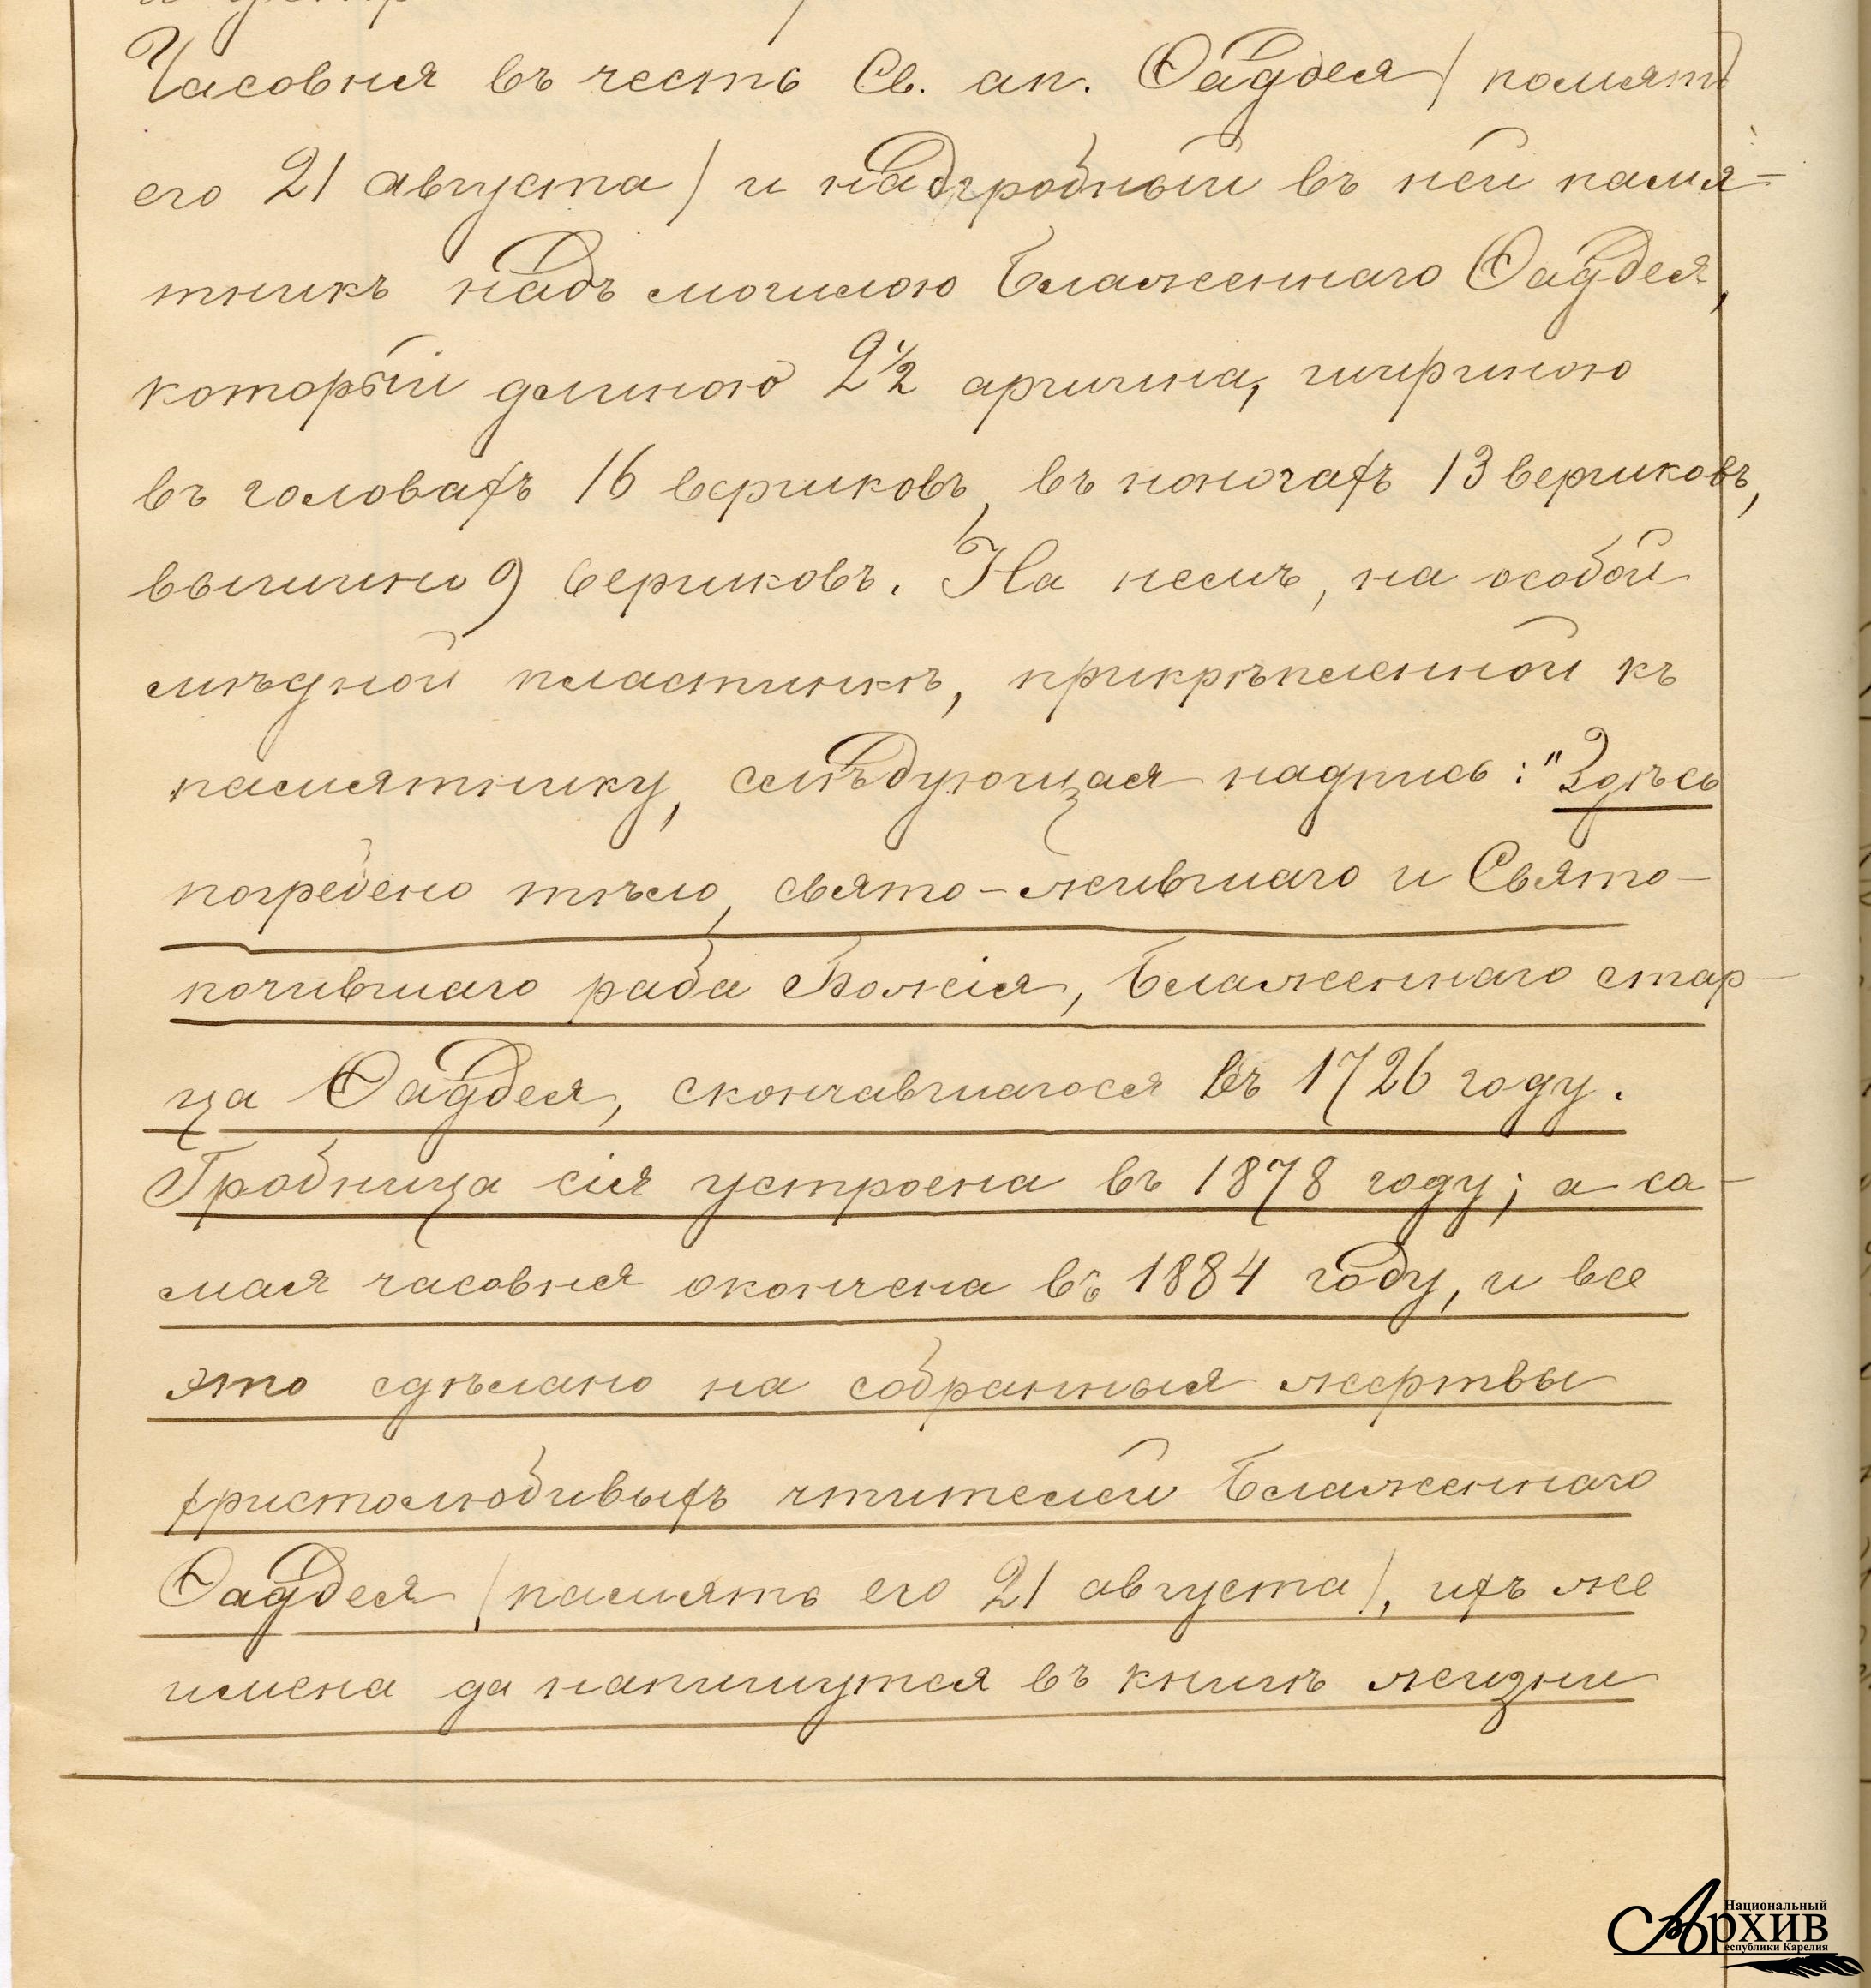 Часовня въ честь Св. ап. Ѳаддея (память
его 21 августа) и надгробный въ ней памя-
тникъ надъ могилою Блаженнаго Ѳаддея,
который длиною 2½ аршина, шириною
въ головахъ 16 вершковъ, въ ногахъ 13 вершковъ,
вышиною 9 вершковъ. На немъ, на особой
мѣдной пластинкѣ, прикрѣпленной къ
памятнику, слѣдующая надпись: "Здѣсь
погребено тѣло, свято-жившаго и Свято-
почившаго раба Божія, Блаженнаго стар-
ца Ѳаддея, скончавшагося въ 1726 году.
Гробница сія устроена въ 1878 году; а са-
мая часовня окончена въ 1884 году, и все
это сдѣлано на собранныя жертвы
христолюбивыхъ чтителей Блаженнаго
Ѳаддея (память его 21 августа), ихъ же
имена да напишутся въ книгѣ жизни
Национальный
Архив
Республики Карелия